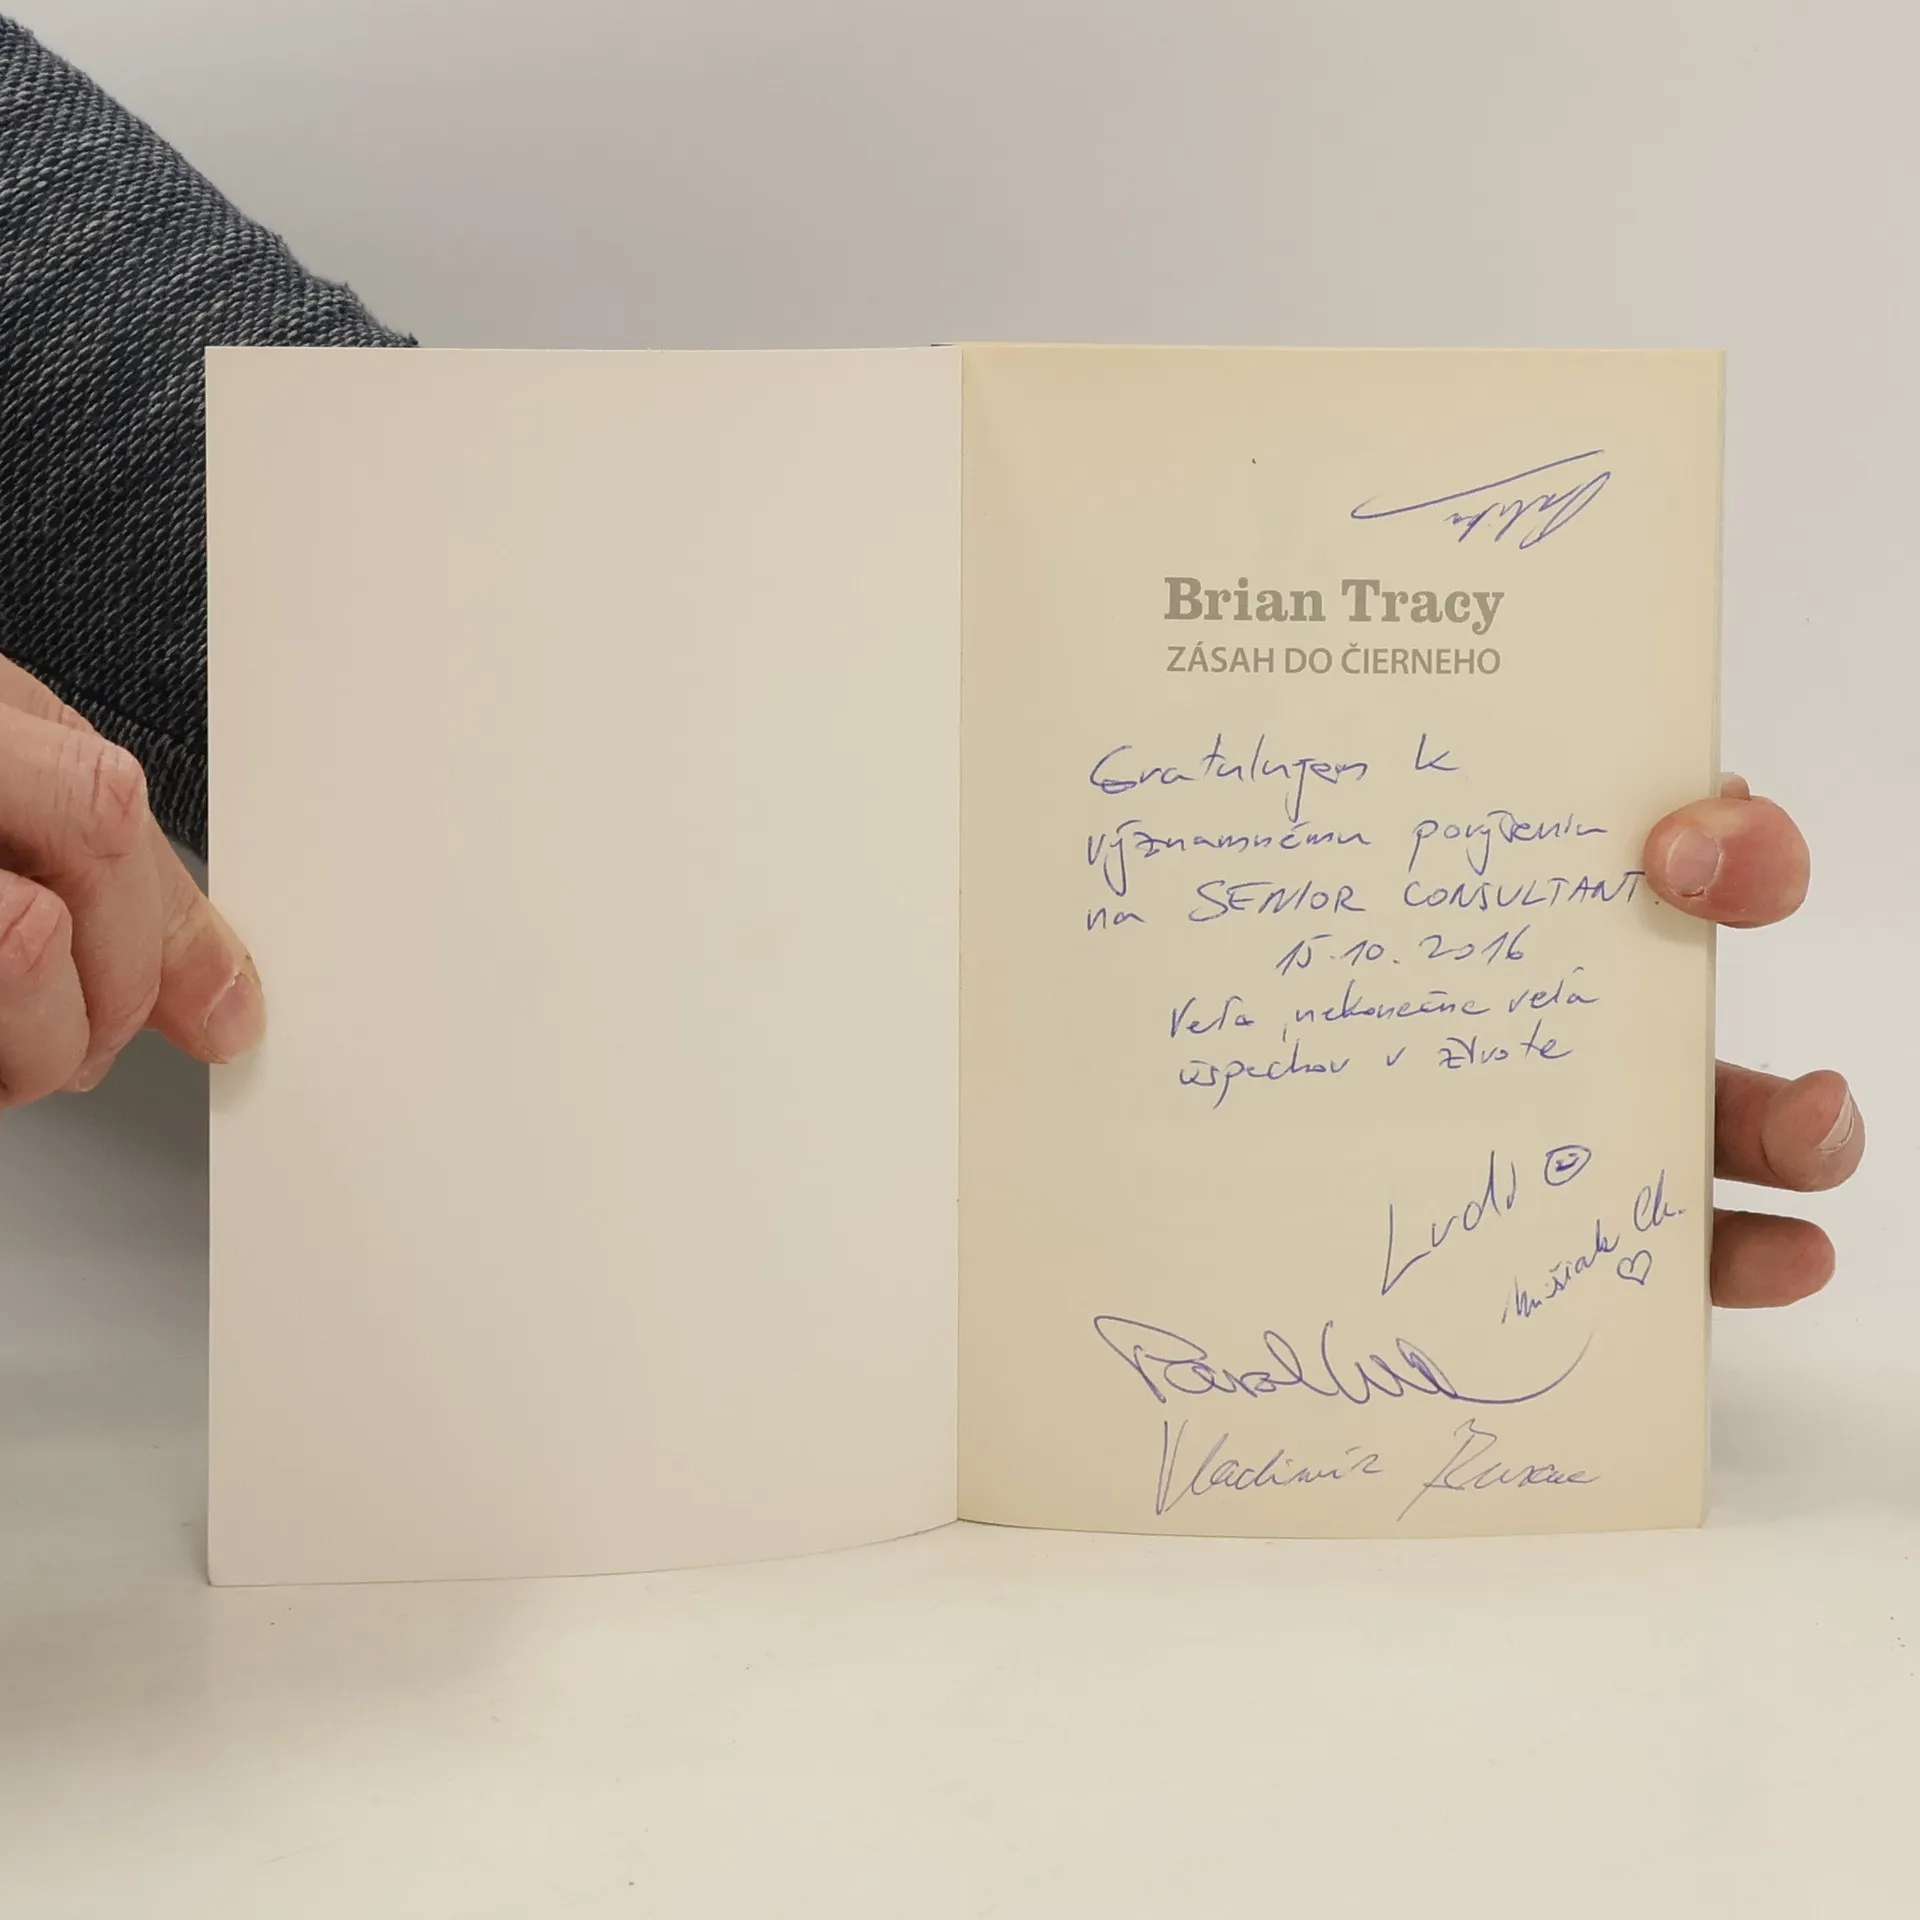 Brian Tracy
ZÁSAH DO ČIERNEHO
Gratulujem k
významnému povýšeniu
na SENIOR CONSULTANT.
15.10.2016
Veľa, nekonečne veľa
úspechov v živote
Ludo ☺
Mišiak Ch.
♡
Pavol
Vladimír